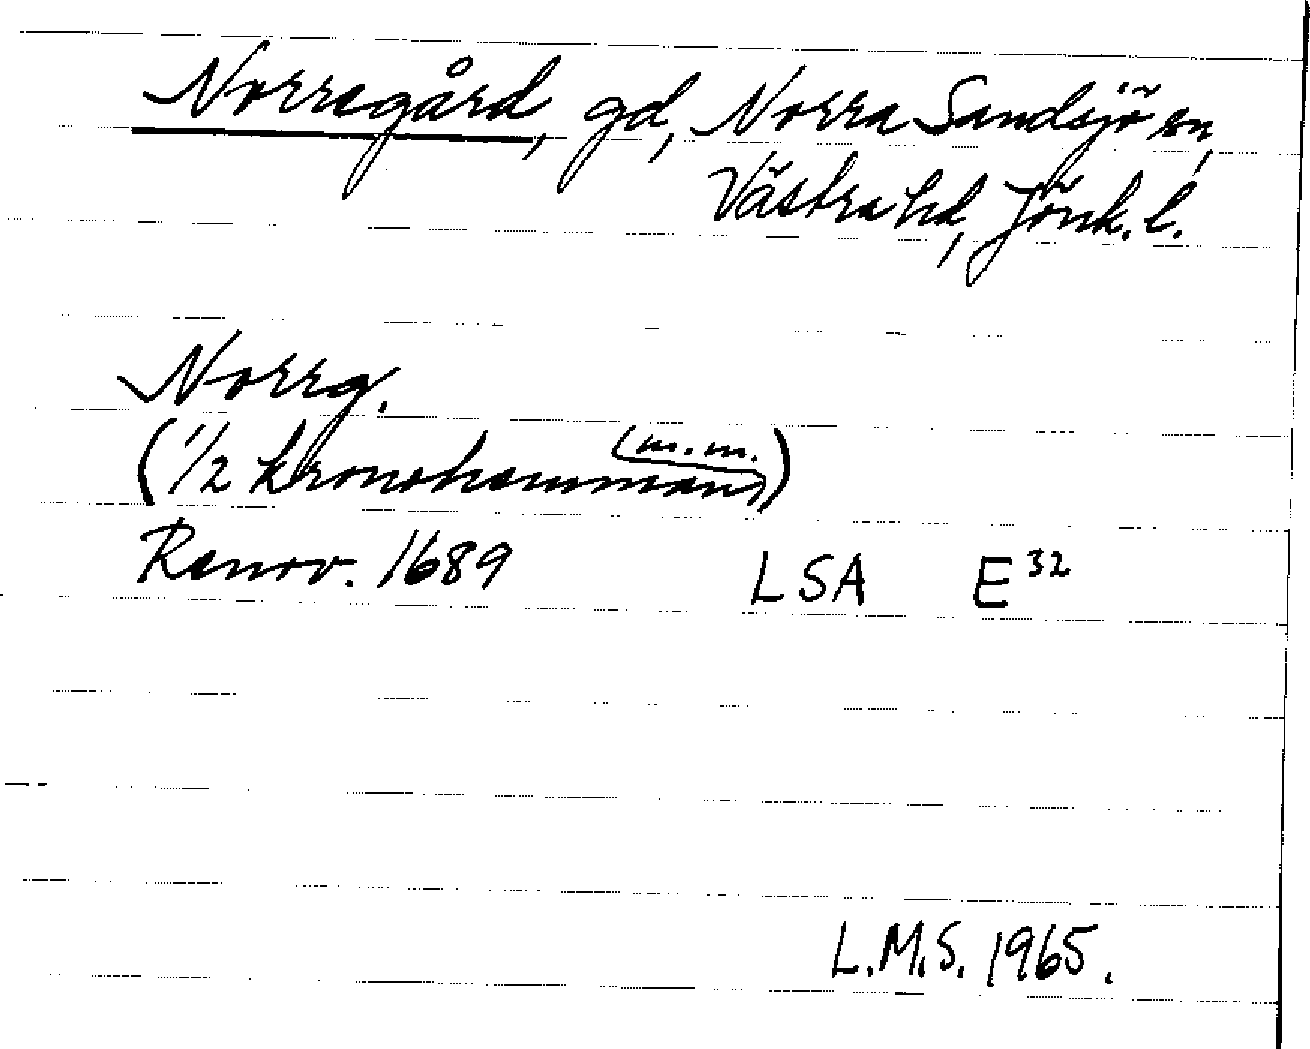 Norregård, gd, Norra Sandsjö sn,
Västra hd, Jönk. l.
Norrg.
(1/2 kronohemman m.m.)
Renov. 1689 LSA E32
L.M.S. 1965.